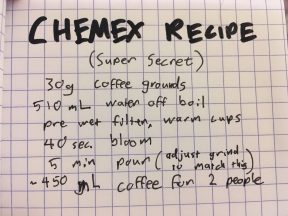 CHEMEX RECIPE
(Super Secret)
30g coffee grounds
510 mL water off boil
pre wet filter, warm cups
40 sec. bloom
5 min pour (adjust grind to match this)
~450 mL coffee for 2 people